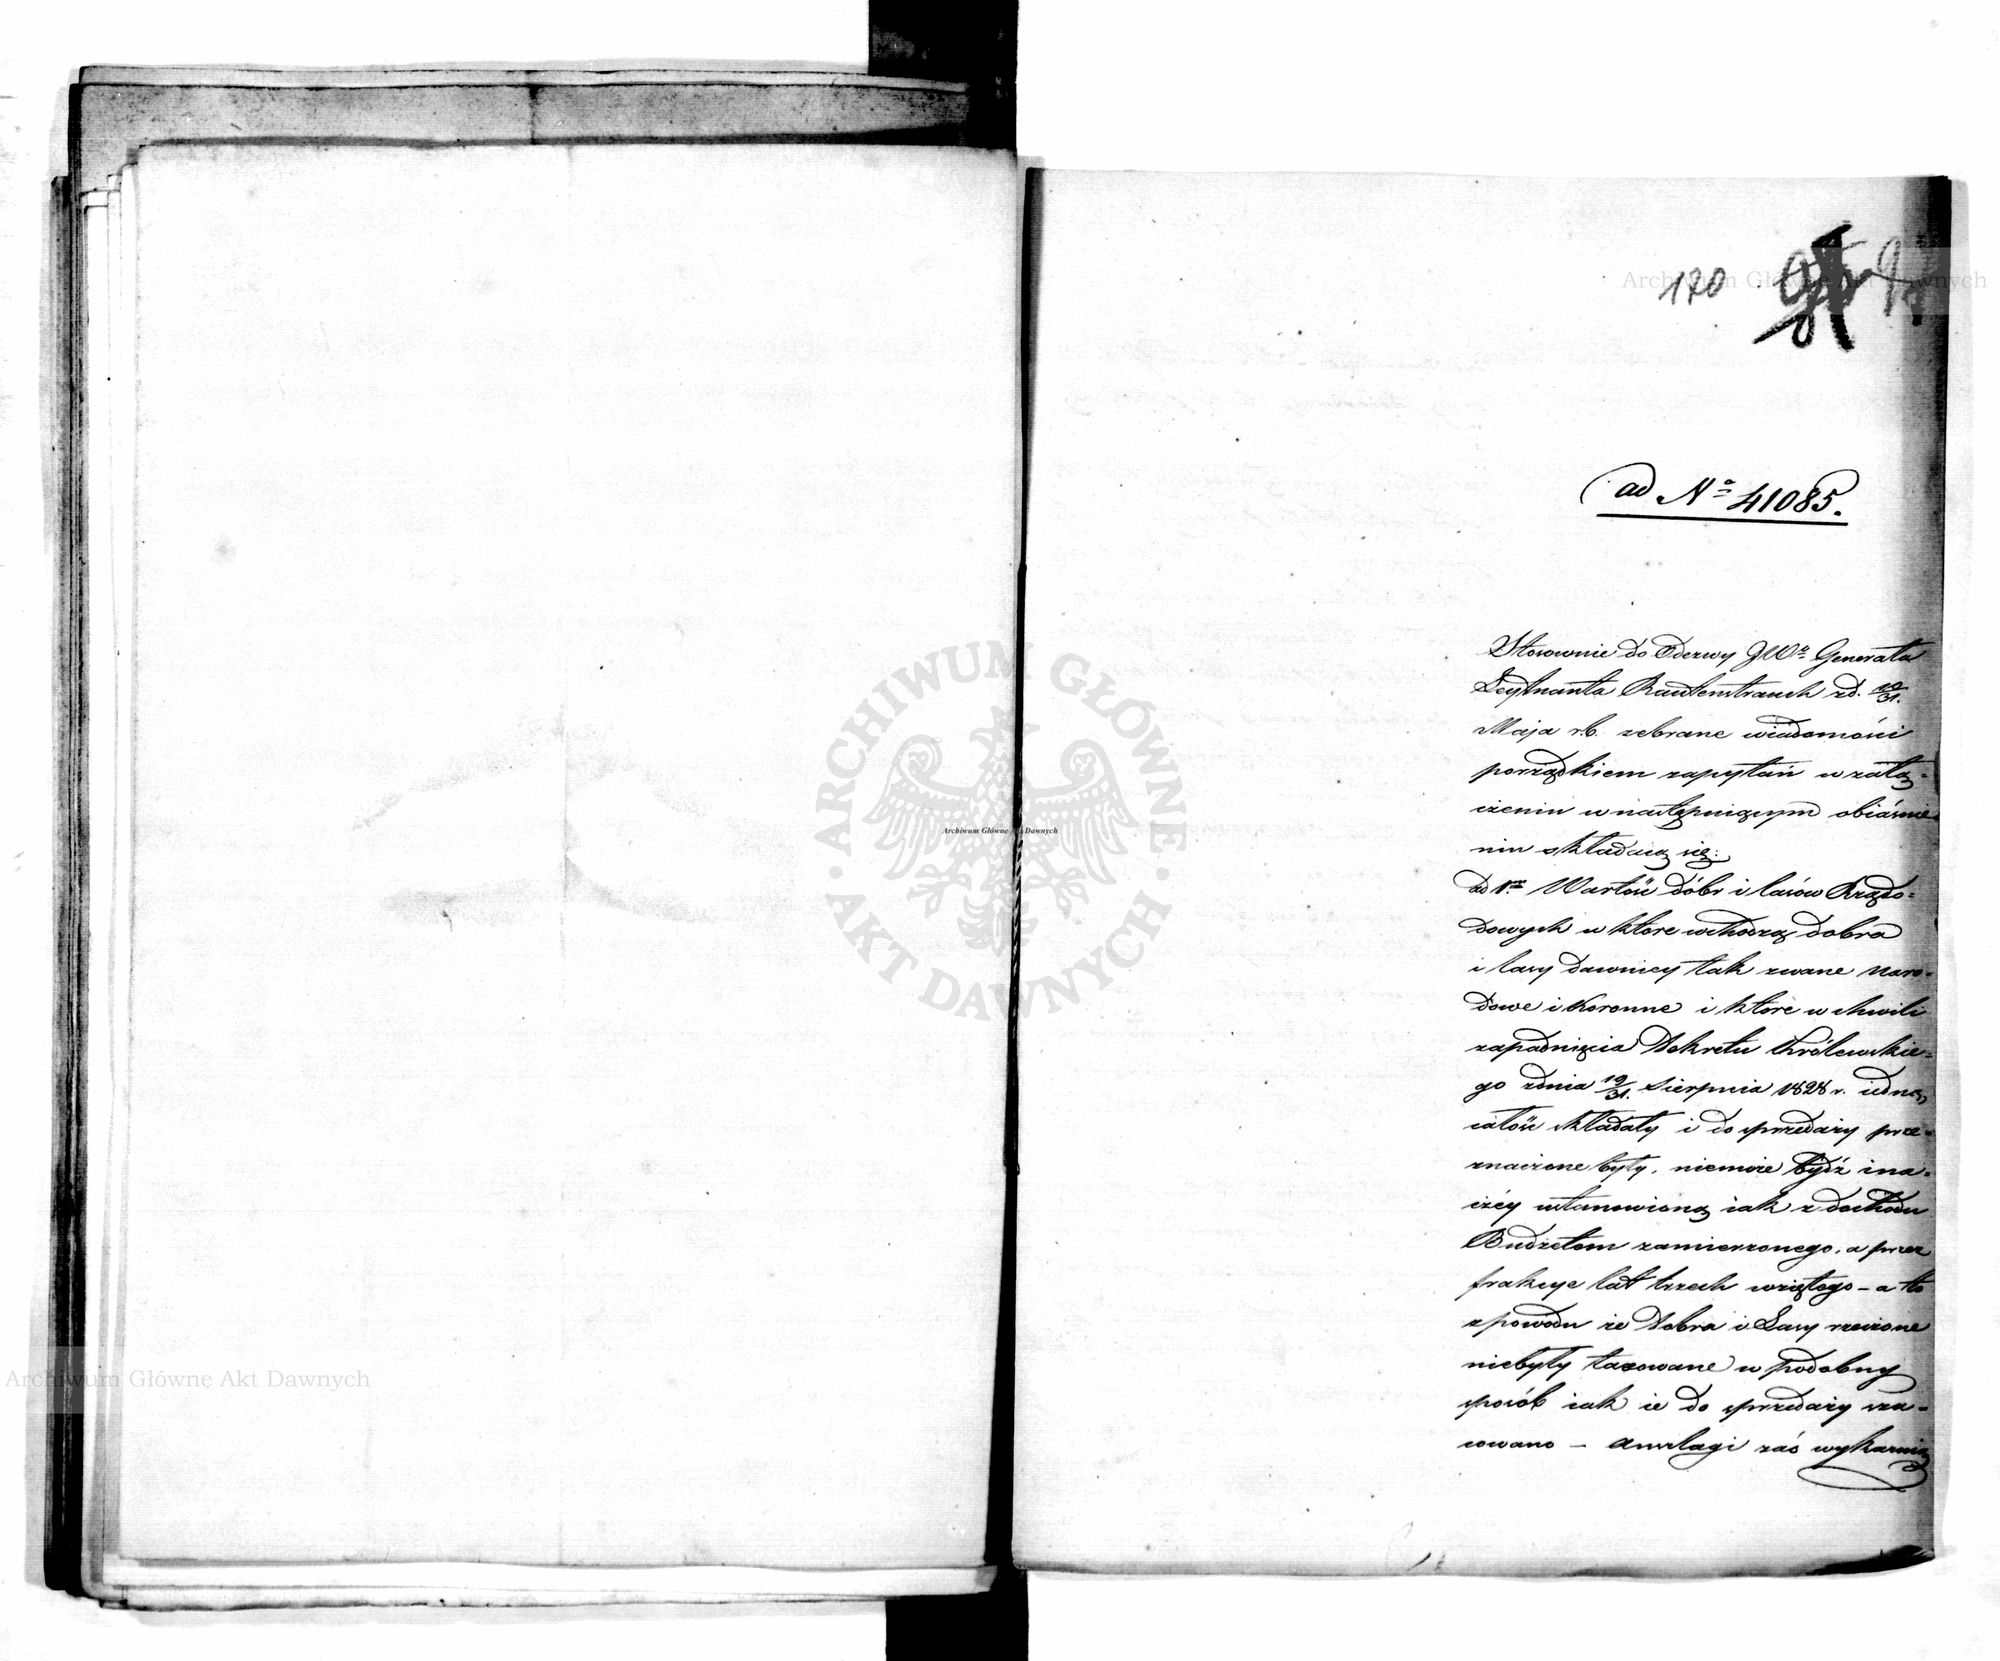 170
97
ad No 41085.
Stosownie do Odezwy JWo Generała
Leytnanta Rautenstrauch z d. 19/31.
Maja r.b. zebrane wiadomości
porządkiem zapytań w załą-
czeniu w następuiącym obiaśnie
niu składaią się:
ad 1mo Wartość dóbr i lasów Rządo-
dowych w które wchodzą dobra
i lasy dawniey tak zwane naro-
dowe i Koronne i które w chwili
zapadnięcia Dekretu Królewskie-
go z dnia 19/31. Sierpnia 1828 r. iedną
całość składały i do sprzedaży prze-
znaczone były, niemoże bydź ina-
czéy ustanowioną iak z dochodu
Budżetem zamierzonego, a przez
frakcye lat trzech wziętego – a to
z powodu że Dobra i Lasy rzeczone
niebyły taxowane w podobny
sposób iak ie do sprzedaży sza-
cowano – Anszlagi zaś wykazuią
ARCHIWUM GŁÓWNE AKT DAWNYCH
Archiwum Główne Akt Dawnych
Archiwum Główne Akt Dawnych
Archiwum Główne Akt Dawnych